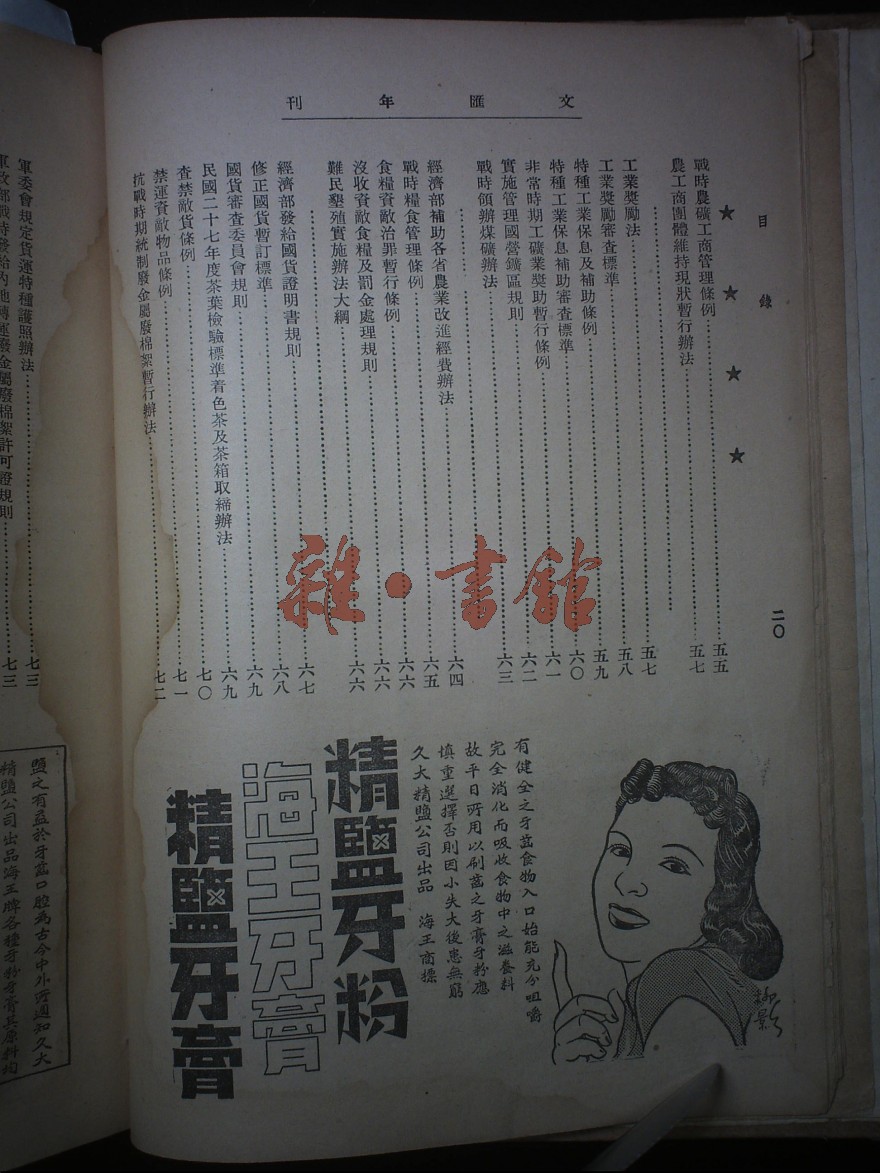 文匯年刊
目錄
二〇
戰時農礦工商管理條例……五五
農工商團體維持現狀暫行辦法……五七
工業獎勵法……五七
工業獎勵審查標準……五八
特種工業保息及補助條例……五九
特種工業保息補助審查標準……六〇
非常時期工礦業獎助暫行條例……六一
實施管理國營鑛區規則……六二
戰時領辦煤礦辦法……六三
經濟部補助各省農業改進經費辦法……六四
戰時糧食管理條例……六五
食糧資敵治罪暫行條例……六六
沒收資敵食糧及罰金處理規則……六六
難民墾殖實施辦法大綱……六六
經濟部發給國貨證明書規則……六七
修正國貨暫訂標準……六八
國貨審查委員會規則……六九
民國二十七年度茶葉檢驗標準着色茶及茶箱取締辦法……六九
查禁敵貨條例……七〇
禁運資敵物品條例……七一
抗戰時期統制廢金屬廢棉絮暫行辦法……七二
軍委會規定貨運特種護照辦法……七三
軍政部戰時發給內地轉運廢金屬廢棉絮許可證規則……七三
雜·書館
有健全之牙齒食物入口始能充分咀嚼
完全消化而吸收食物中之滋養料
故平日所用以刷齒之牙膏牙粉應
慎重選擇否則因小失大後患無窮
久大精鹽公司出品 海王商標
精鹽牙粉
海王牙膏
精鹽牙膏
柳影
鹽之有益於牙齒口腔為古今中外所週知久大
精鹽公司出品海王牌各種牙粉牙膏其原料均